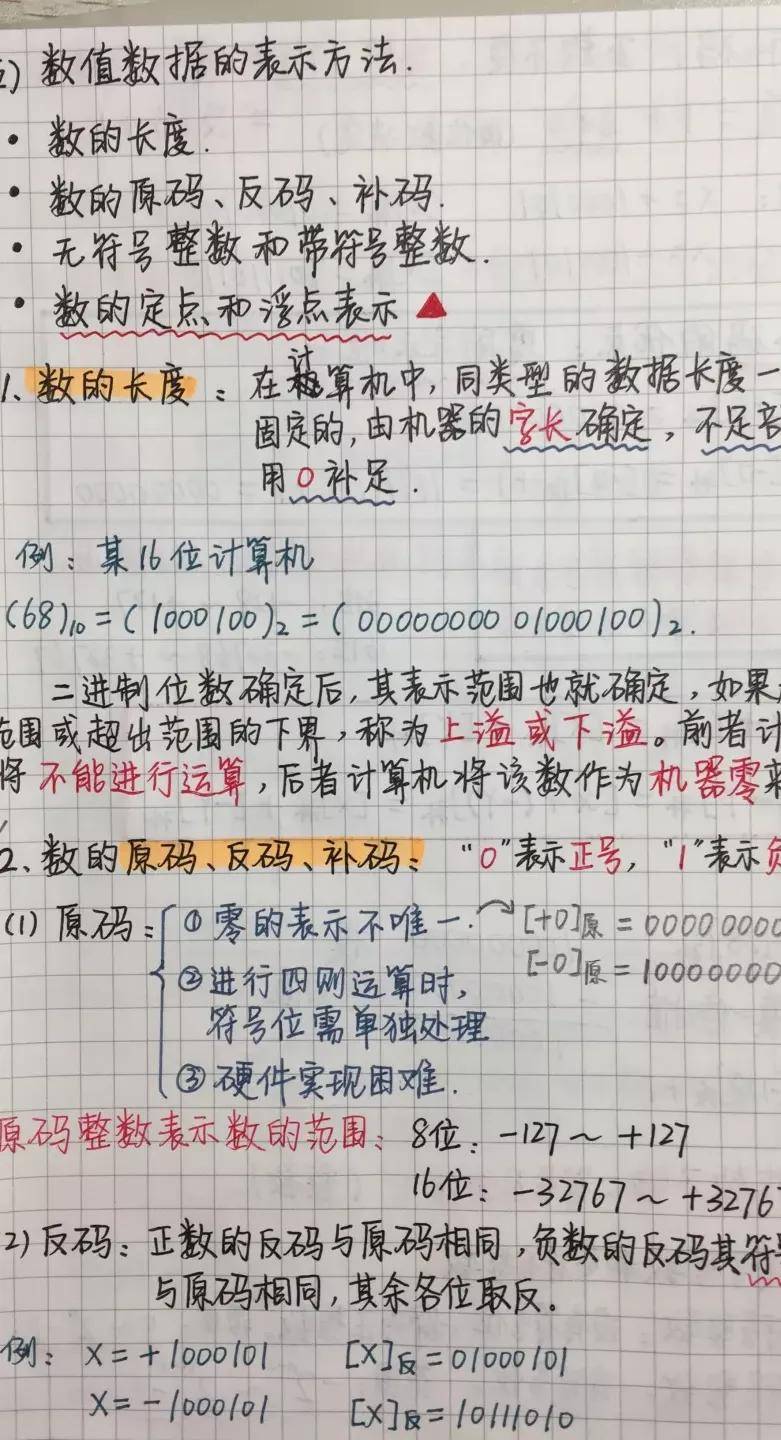 ) 数值数据的表示方法.
· 数的长度.
· 数的原码、反码、补码.
· 无符号整数和带符号整数.
· 数的定点和浮点表示 ▲
1、数的长度：在计算机中，同类型的数据长度一
固定的，由机器的字长确定，不足部
用0补足.
例：某16位计算机
(68)₁₀=(1000100)₂=(00000000 01000100)₂.
二进制位数确定后，其表示范围也就确定，如果
范围或超出范围的下界，称为上溢或下溢。前者计
将不能进行运算，后者计算机将该数作为机器零来
2、数的原码、反码、补码："0"表示正号，"1"表示负
(1) 原码：①零的表示不唯一. [+0]原=00000000
[-0]原=10000000
②进行四则运算时，
符号位需单独处理
③硬件实现困难.
原码整数表示数的范围：8位：-127～+127
16位：-32767～+32767
2) 反码：正数的反码与原码相同，负数的反码其符号
与原码相同，其余各位取反。
例：X=+1000101 [X]反=01000101
X=-1000101 [X]反=10111010